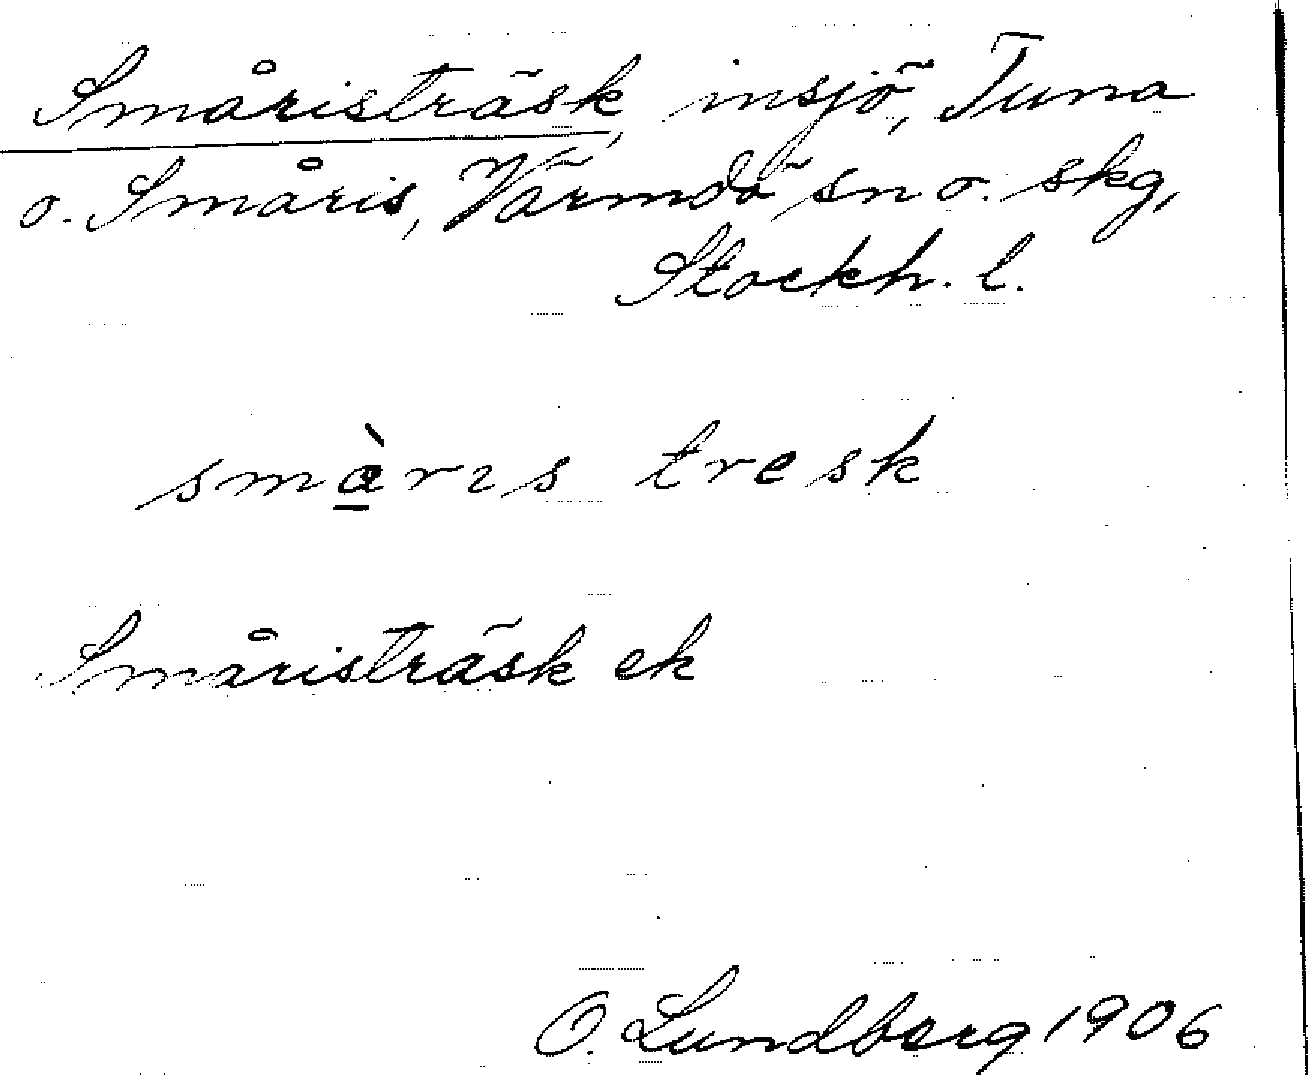 Småristräsk, insjö, Tuna
o. Småris, Värmdö sn o. skg,
Stockh. l.
smàrıs tresk
Småristräsk ek
O. Lundberg 1906